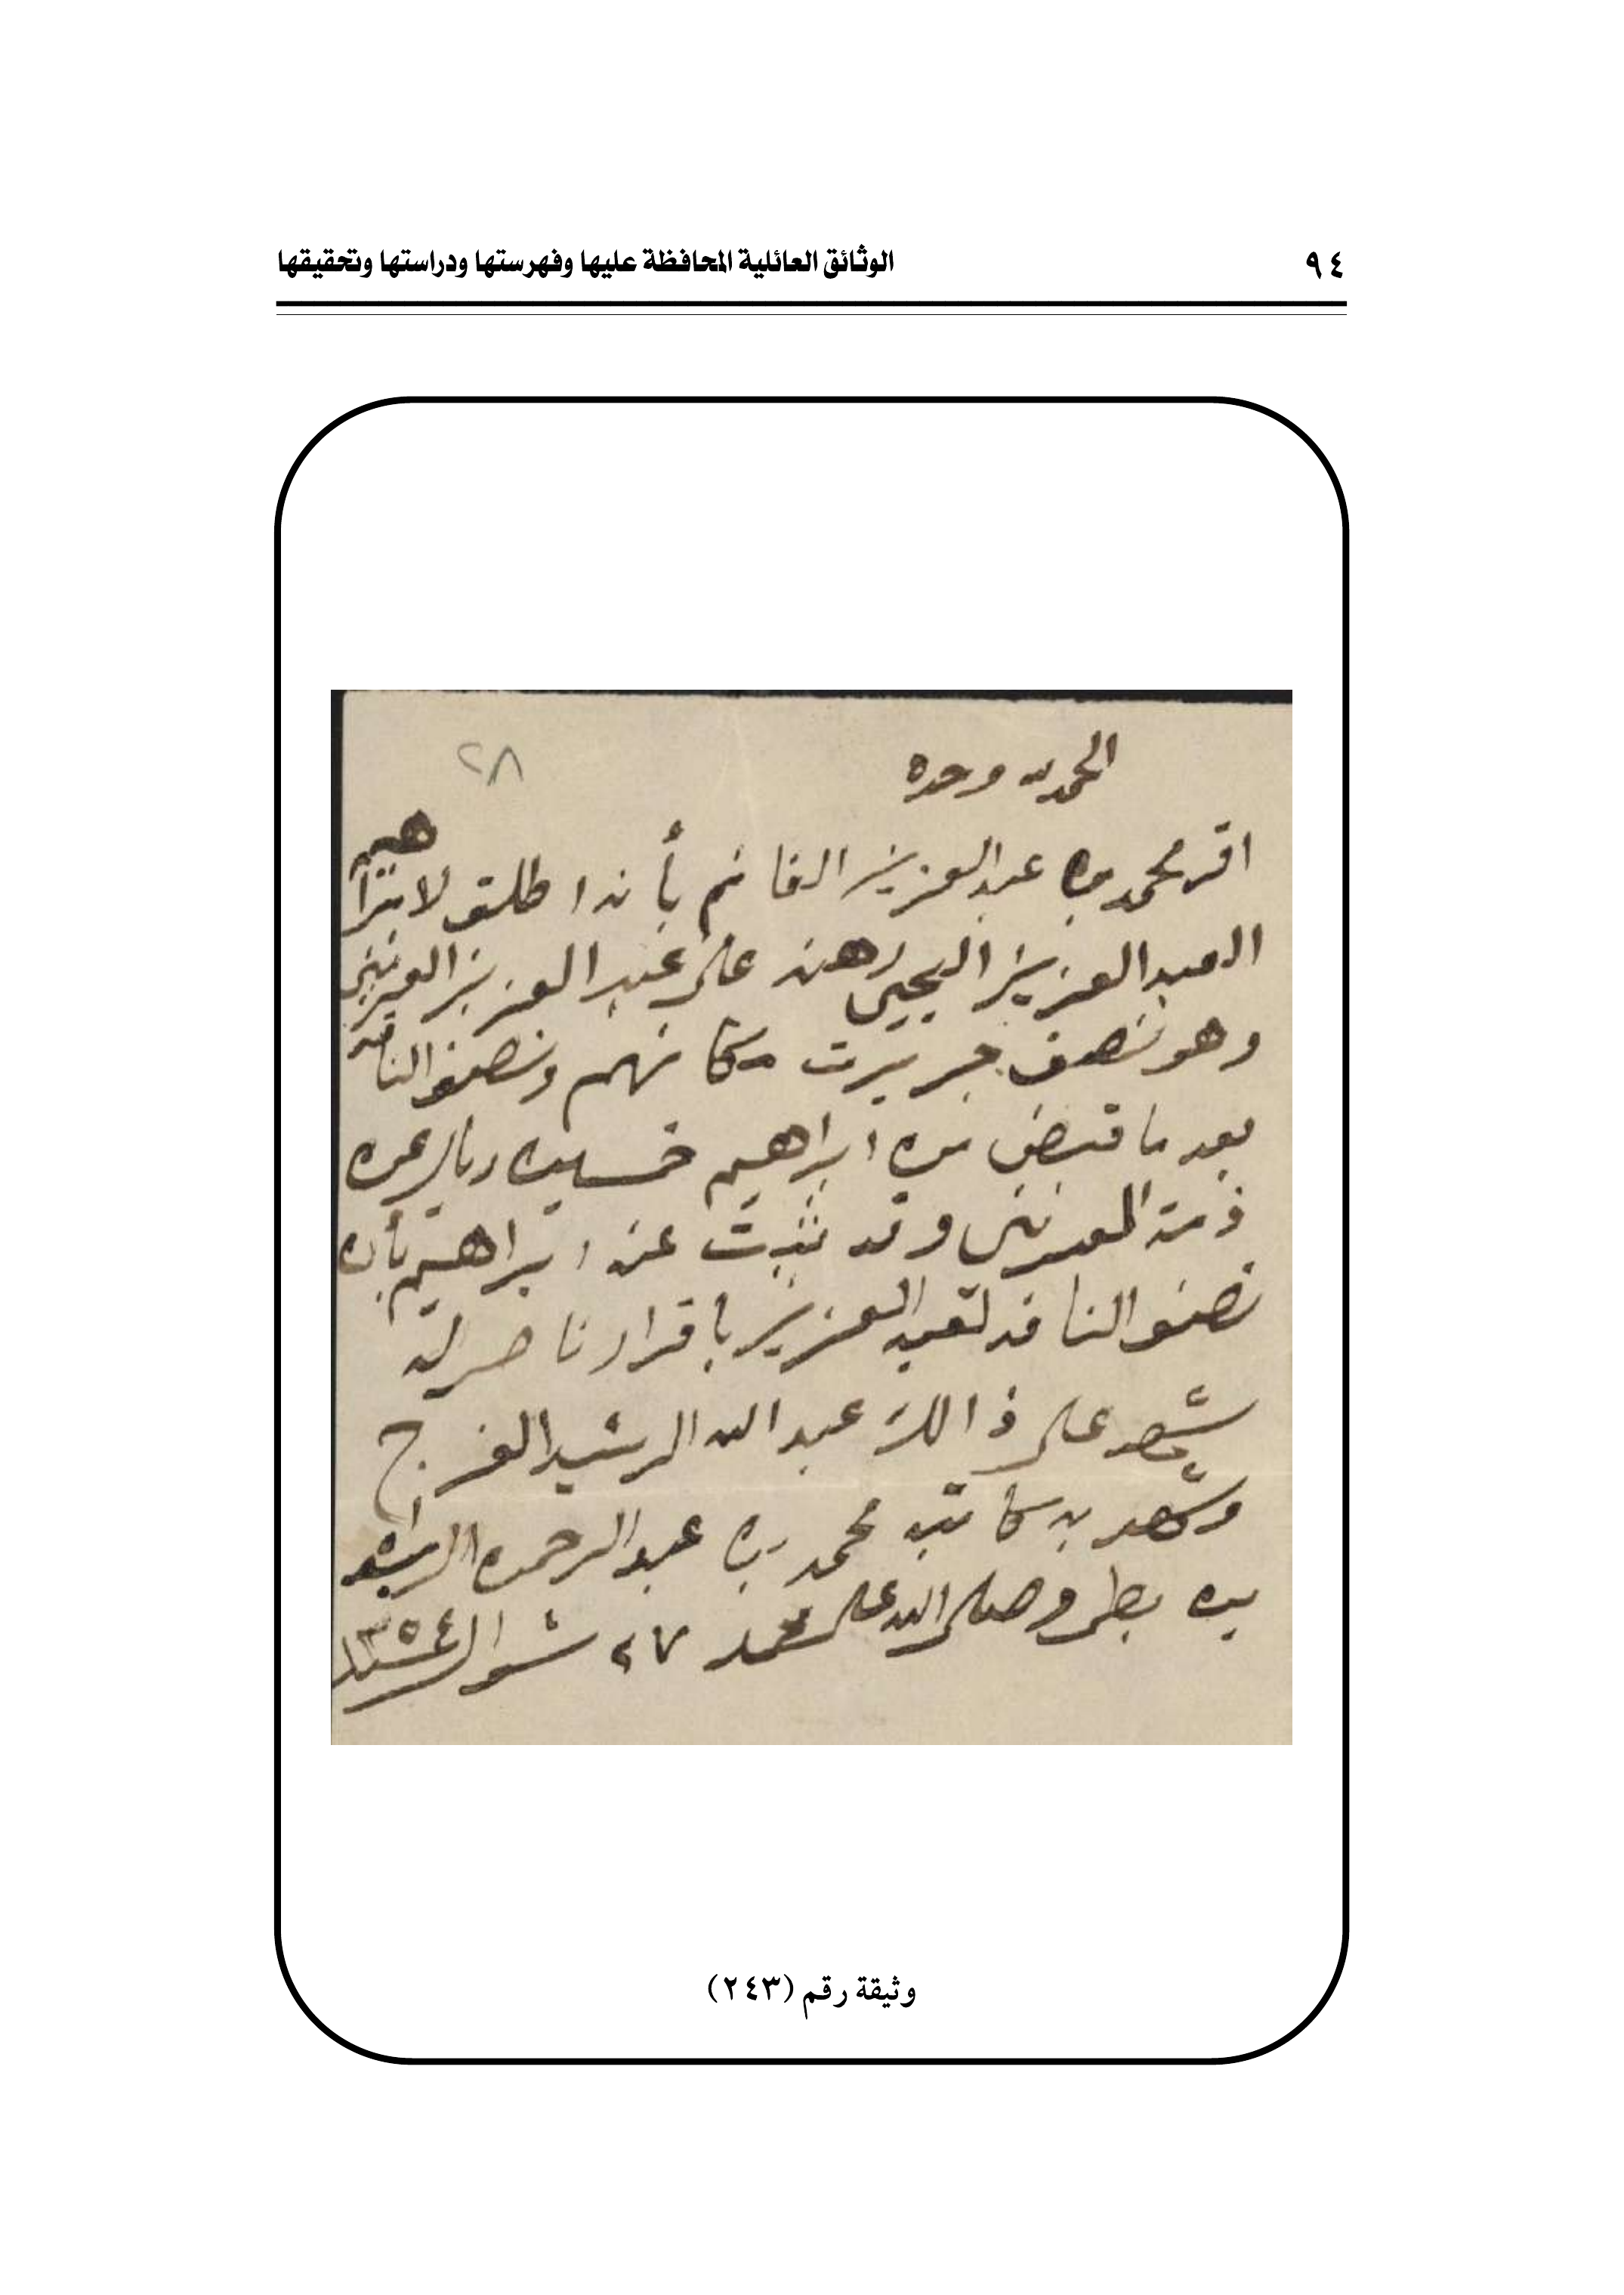 ٩٤
الوثائق العائلية المحافظة عليها وفهرستها ودراستها وتحقيقها
٢٨
الحمد لله وحده
اقر محمد بن عبدالعزيز الغانم بأنه اطلق لابراهيم
العبدالعزيز اليحيى رهنه على عبدالعزيز العريني
وهو نصف جريرت مكانهم ونصف الناقه
بعد ما قبض من ابراهيم خمسين ريال عن
ذمة العريني وقد ثبت عند ابراهيم بأن
نصف الناقه لعبدالعزيز باقرارنا صر له
شهد على ذالك عبدالله الرشيد الفرج
وشهد به كاتبه محمد بن عبدالرحمن
وصلى الله على محمد ٢٧ شوال ١٣٥٤
وثيقة رقم (٢٤٣)